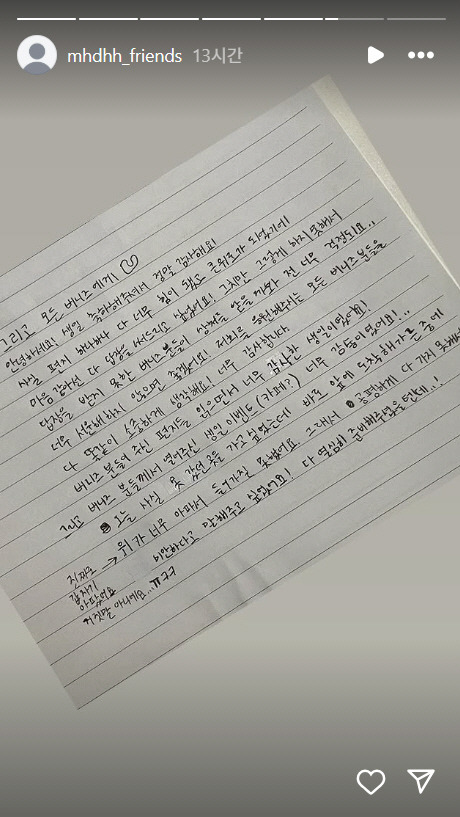 mhdhh_friends 13시간
그리고 모든 버니즈에게!
안녕하세요! 생일 축하해주셔서 정말 감사해요!
사실 편지 하나하나 다 너무 힘이 됐고 큰 위로가 되었기에!
마음 같아선 다 답장을 써드리고 싶었어요! 그치만 그렇게 하지 못해서
답장을 받지 못한 버니즈분들이 상처를 받을까봐 전 너무 걱정되요..
너무 서운해하지 않으면 좋겠어요! 저희를 응원해주는 모든 버니즈분들을
다 똑같이 소중하게 생각해요! 너무 감사합니다.
버니즈 분들이 주신 편지를 읽으면서 너무 감사한 생일이었어요!
그리고 버니즈 분들께서 열어주신 생일 이벤트(카페?) 너무 감동이었어요!..
오늘 사실 못 갔던 곳을 가고 싶었는데 바로 앞에 도착해가는 중에
→ 위가 너무 아파서 들어가질 못했어요. 그래서 공평하게 다 가지 못해서
미안하다고 말해주고 싶었어요! 다 열심히 준비해주셨을텐데..
진짜로
갑자기
아팠어요
거짓말 아니에요...ㅠㅋㅋ